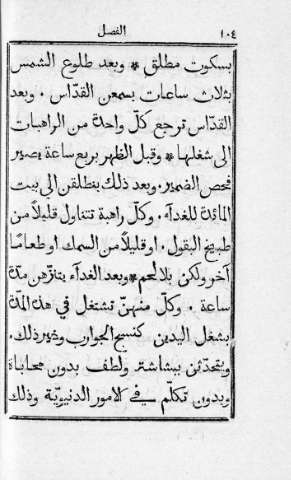 ١٠٤ الفصل
بسكوت مطلق * وبعد طلوع الشمس
بثلاث ساعات يسمعن القدّاس . وبعد
القدّاس ترجع كلّ واحدة من الراهبات
الى شغلها * وقبل الظهر بربع ساعة يصير
فحص الضمير . وبعد ذلك ينطلقن الى بيت
المائدة للغدآء . وكلّ راهبة تتناول قليلاً من
طبيخ البقول . او قليلاً من السمك او طعامًا
آخر ولكن بلا لحم * وبعد الغدآء يتنزّهن مدّة
ساعة . وكلّ منهنّ تشتغل في هذه المدّة
بشغل اليدين كنسج الجوارب وغير ذلك .
ويتحدّثن ببشاشة ولطف بدون محاباة
وبدون تكلّم في الامور الدنيويّة وذلك